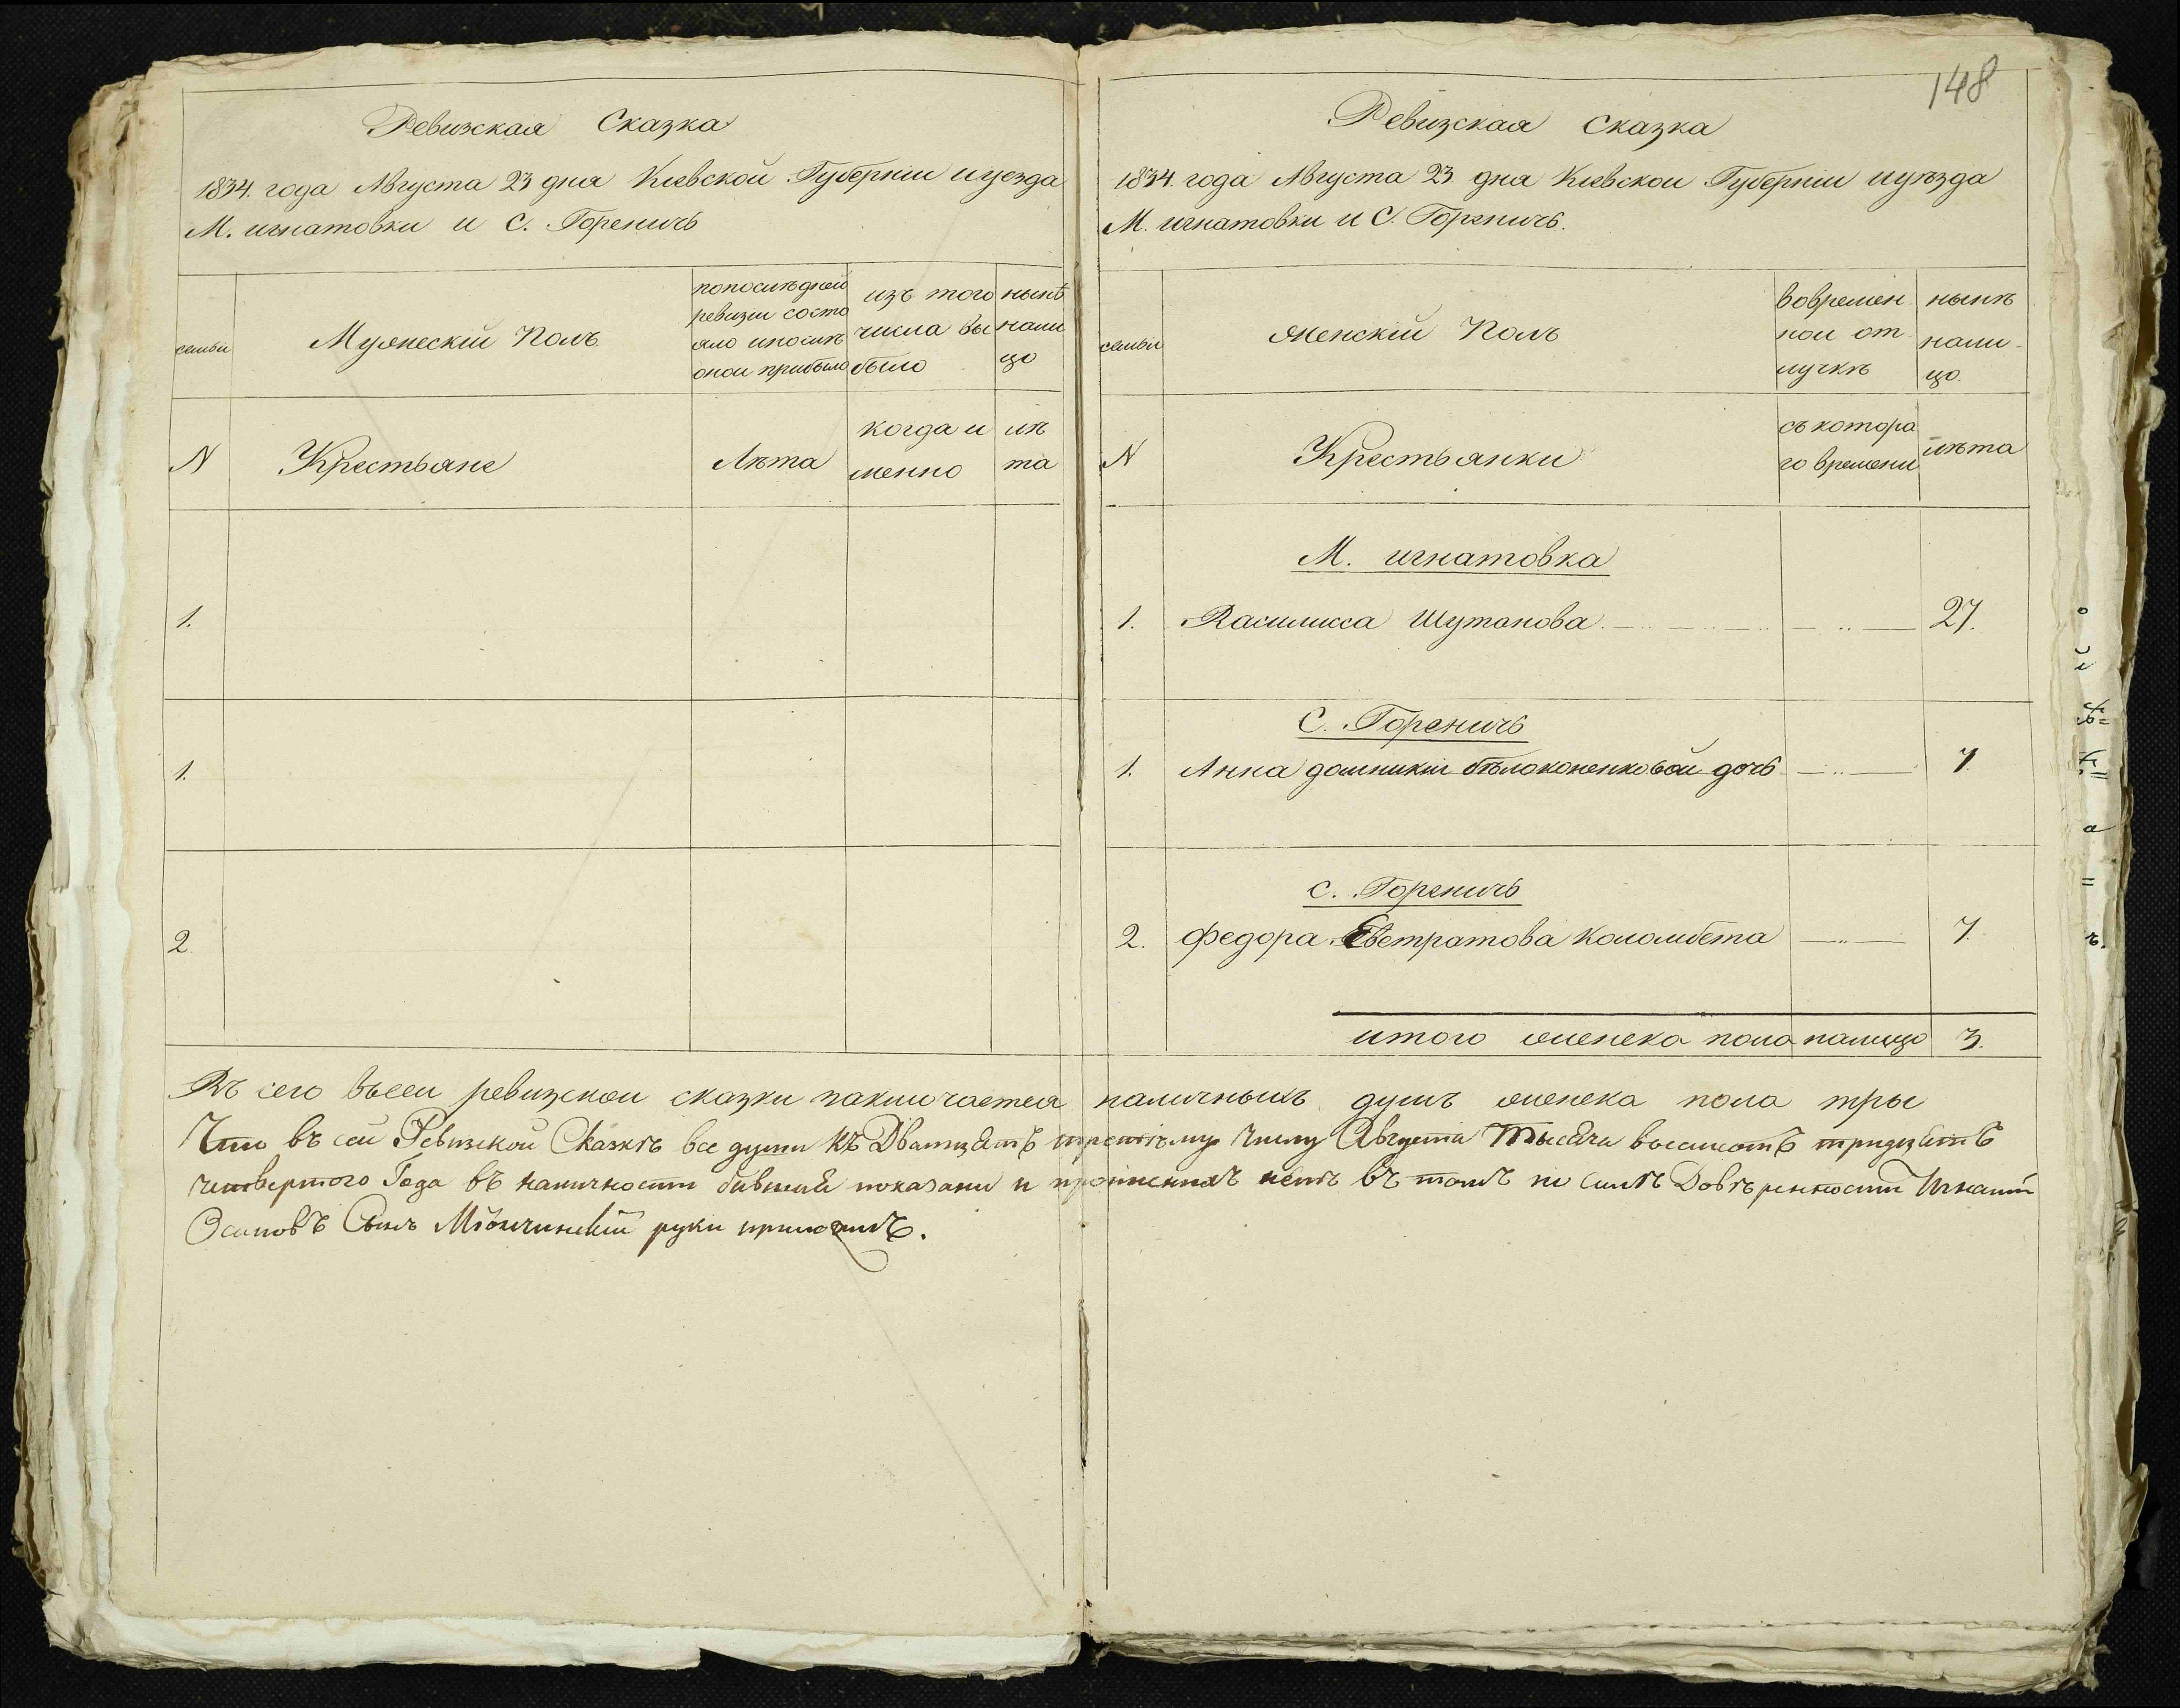 Ревизская Сказка
1834. года Августа 23 дня Киевской Губернiи иуезда
М. игнатовки и С. Гореничь
семьи
Мужескiй Полъ
попослѣдней
ревизiи состо
яло ипослѣ
оной прибыло
изъ того
числа вы
было
нынѣ
нали
цо
N
Крестьяне
Лѣта
когда и
менно
лѣ
та
1.
1.
2
148
Ревизская Сказка
1834. года Августа 23 дня Киевскои Губернiи иуѣзда
М. игнатовки и С. Гореничь.
семьи
Женскiй Полъ
вовремен
нои от
лучкѣ
нынѣ
нали-
цо.
N
Крестьянки
съ котора
го времени
лѣта
М. игнатовка
1. Василисса Шутанова 27.
С. Гореничь
1. Анна домникiи бѣлоконенковой дочь 7
С. Гореничь
2. Федора Евстратова Коломбета 7.
итого женска пола налицо 3.
Въ сего всеи ревизской сказки заключается наличныхъ душъ женска пола тры
Что въ сей Ревизской Сказкѣ все души къ Двацать третьему числу Августа Тысяча восемсотъ тридцать
четвертого Года въ наличности бывшия показани и нѣтъ въ томъ по силѣ Довѣренности Игнатiй
Осиповъ Сынъ руки приложилъ.